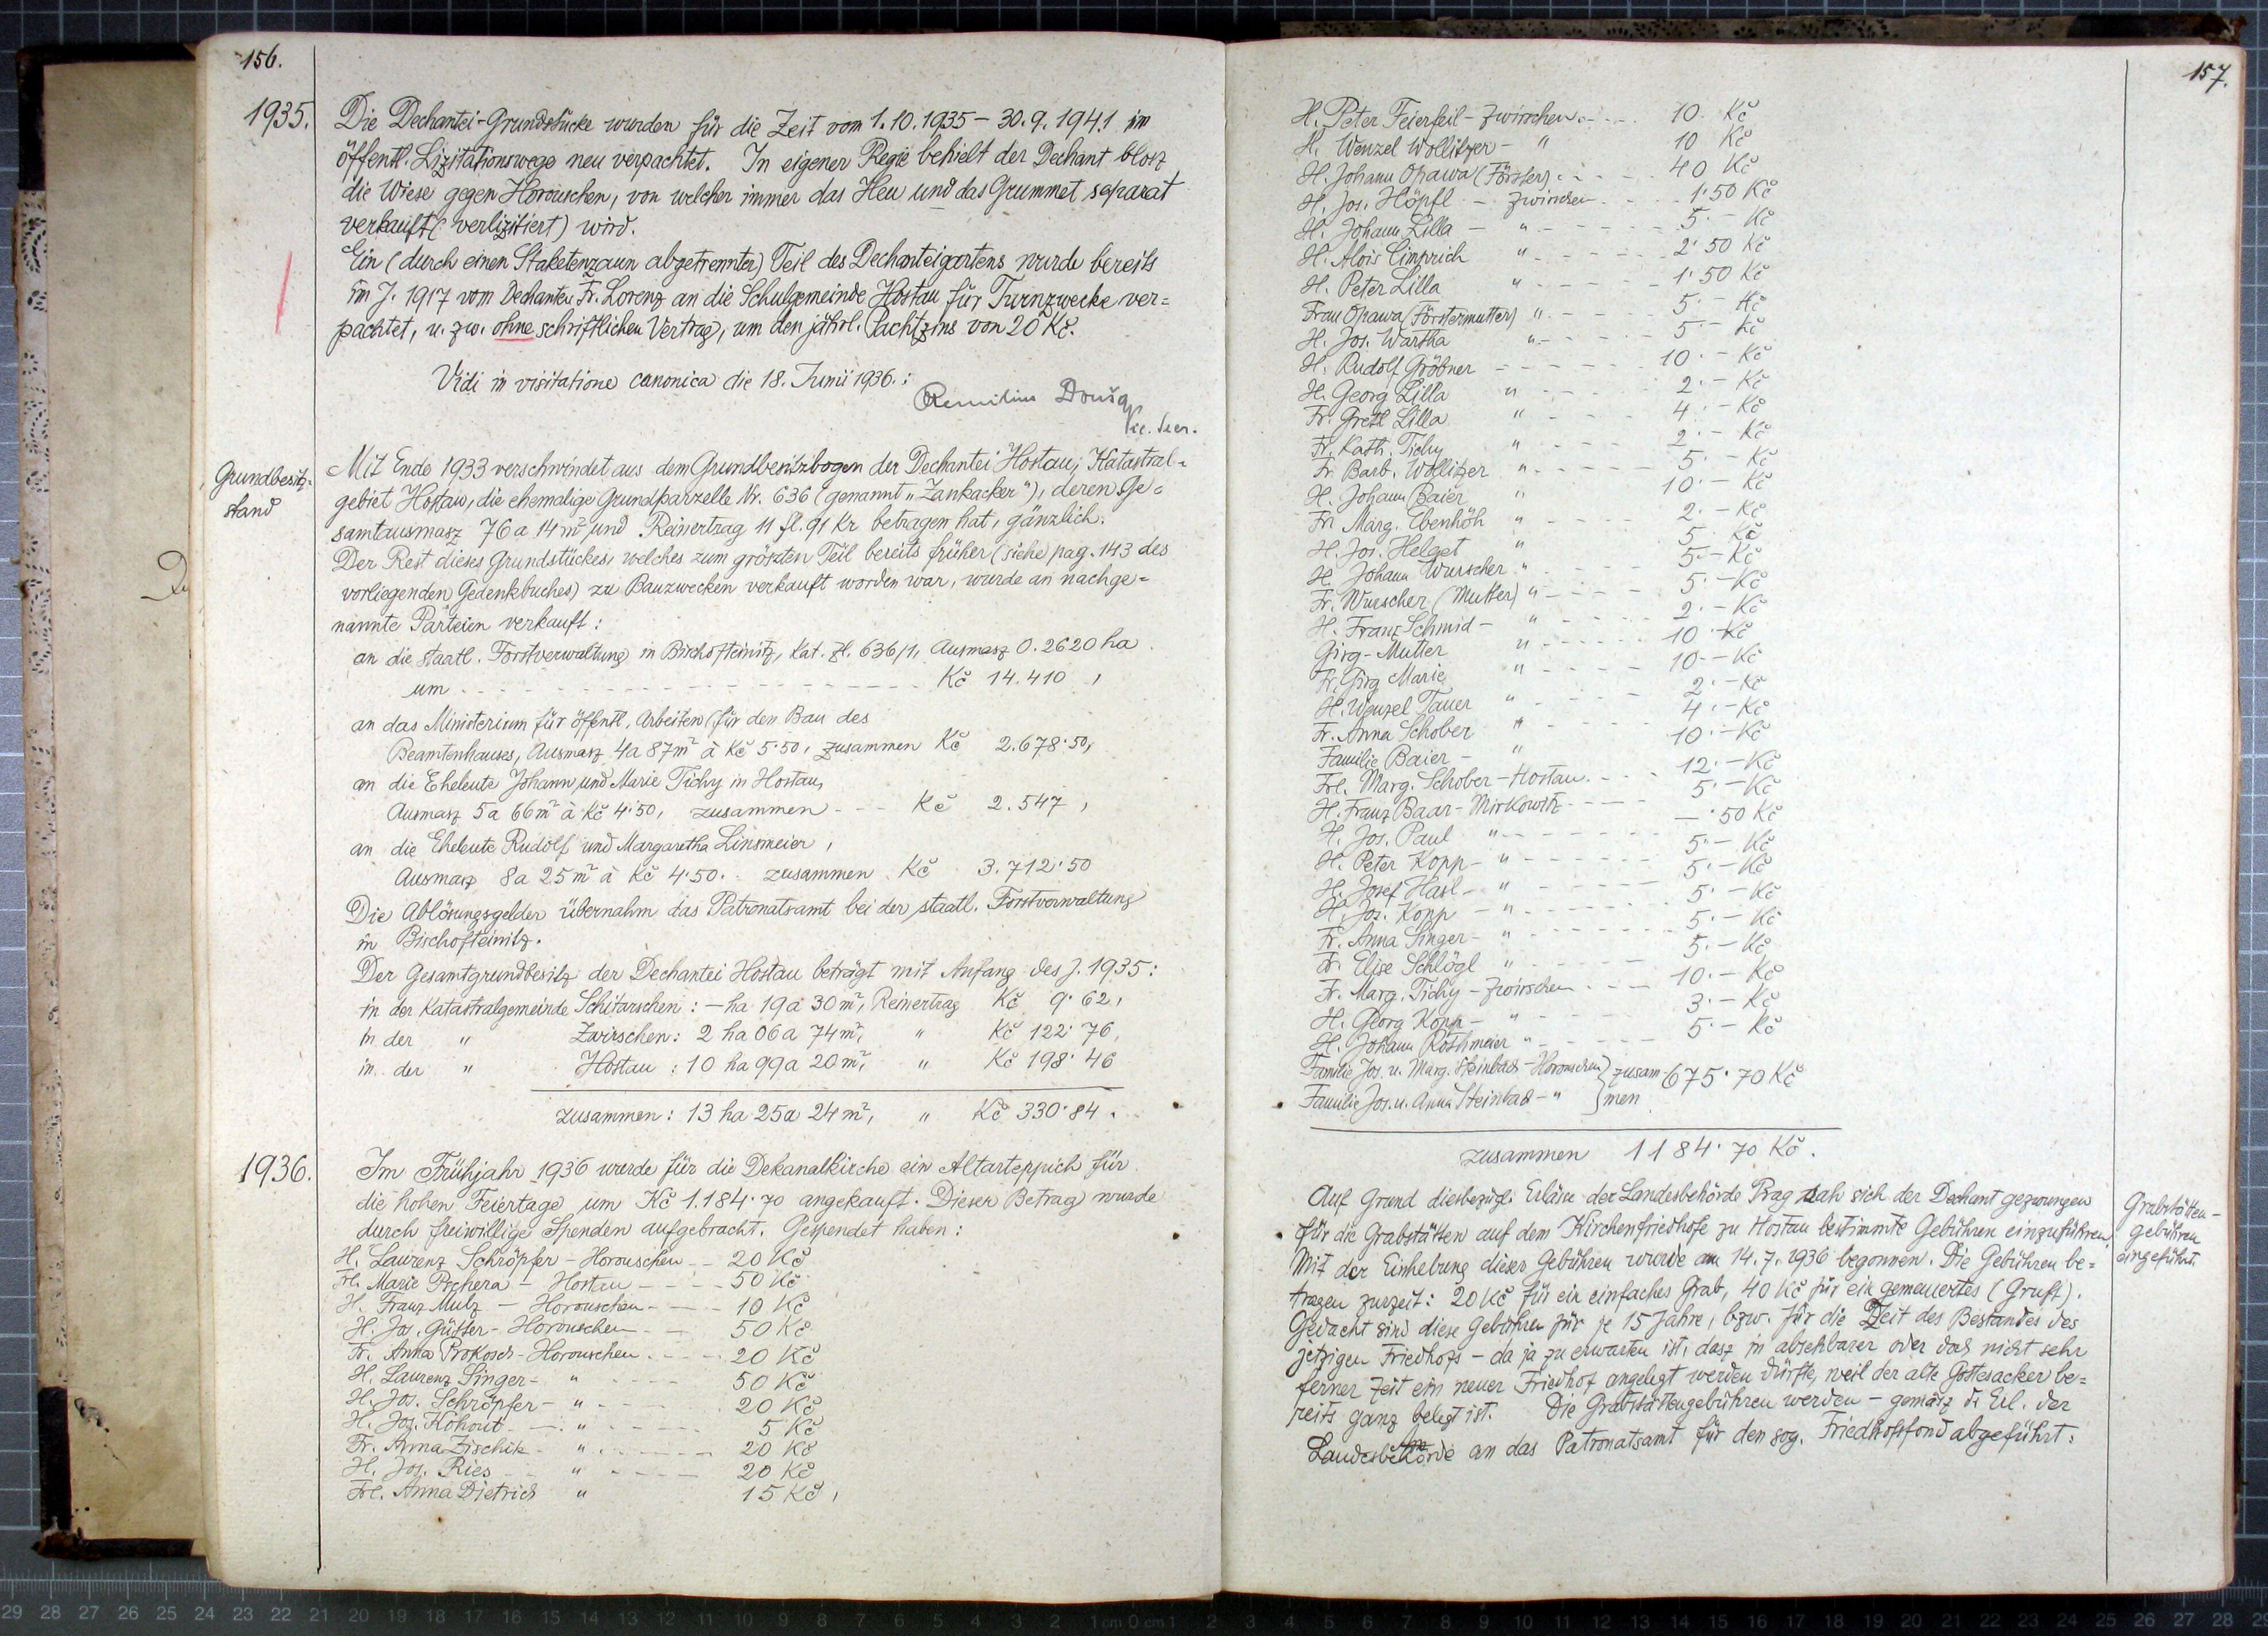 156.
1935.
Die Dechantei-Grundstücke wurden für die Zeit vom 1.10.1935 – 30.9.1941 im
öffentl. Lizitationswege neu verpachtet. In eigener Regie behielt der Dechant blosz
die Wiese gegen Horouschen, von welcher immer das Heu und das Grummet separat
verkauft (verlizitiert) wird.
Ein (durch einen Staketenzaun abgetrennter) Teil des Dechanteigartens wurde bereits
im J. 1917 vom Dechanten Fr. Lorenz an die Schulgemeinde Hostau für Turnzwecke ver=
pachtet, u. zw. ohne schriftlichen Vertrag, um den jährl. Pachtzins von 20 Kč.
Vidi in visitatione canonica die 18. Junii 1936.:
Remilius Douša
Vic. Secr.
Grundbesitz-
stand
Mit Ende 1933 verschwindet aus dem Grundbesitzbogen der Dechantei Hostau, Katastral-
gebiet Hostau, die ehemalige Grundparzelle Nr. 636 (genannt "Zankacker"), deren Ge=
samtausmasz 76 a 14 m² und Reinertrag 11 fl. 91 Kr betragen hat, gänzlich.
Der Rest dieses Grundstückes, welches zum gröszten Teil bereits früher (siehe pag. 143 des
vorliegenden Gedenkbuches) zu Bauzwecken verkauft worden war, wurde an nachge=
nannte Parteien verkauft:
an die staatl. Forstverwaltung in Bischofteinitz, Kat. Zl. 636/1, Ausmasz 0.2620 ha
um - - - Kč 14.410,
an das Ministerium für öffentl. Arbeiten (für den Bau des
Beamtenhauses, Ausmasz 4a 87m² à Kč 5·50, zusammen Kč 2.678·50,
an die Eheleute Johann und Marie Tichy in Hostau,
Ausmasz 5a 66m² à Kč 4·50, zusammen - - - Kč 2.547,
an die Eheleute Rudolf und Margaretha Linsmeier,
Ausmasz 8a 25m² à Kč 4·50. zusammen Kč 3.712·50
Die Ablösungsgelder übernahm das Patronatsamt bei der staatl. Forstverwaltung
in Bischofteinitz.
Der Gesamtgrundbesitz der Dechantei Hostau beträgt mit Anfang des J. 1935:
in der Katastralgemeinde Schitarschen: – ha 19a 30m², Reinertrag Kč 9·62,
in der " Zwirschen: 2 ha 06a 74m², " Kč 122·76,
in der " Hostau: 10 ha 99a 20m², " Kč 198·46
zusammen: 13 ha 25a 24m², " Kč 330·84.
1936.
Im Frühjahr 1936 wurde für die Dekanalkirche ein Altarteppich für
die hohen Feiertage um Kč 1.184·70 angekauft. Dieser Betrag wurde
durch freiwillige Spenden aufgebracht. Gespendet haben:
H. Laurenz Schröpfer – Horouschen - - 20 Kč
Frl. Marie Pschera – Hostau - - - 50 Kč
H. Franz Mulz – Horouschen - - - 10 Kč
H. Jos. Güsser – Horouschen - - 50 Kč
Fr. Anna Prokosch – Horouschen - - - 20 Kč
H. Laurenz Singer - " - - - 50 Kč
H. Jos. Schröpfer - " - - - 20 Kč
H. Jos. Kohout - " - - - 5 Kč
Fr. Anna Zischik - " - - - 20 Kč
H. Jos. Ries - " - - - 20 Kč
Frl. Anna Dietrich " 15 Kč,
157.
H. Peter Feierfeil – Zwirschen - - - 10 Kč
H. Wenzel Wollitzer - " 10 Kč
H. Johann Opawa (Förster) - - - 40 Kč
H. Jos. Höpfl – Zwirschen - - - 1·50 Kč
H. Johann Lilla - " - - - 5·– Kč
H. Alois Cimprich " - - - 2·50 Kč
H. Peter Lilla " - - - 1·50 Kč
Frau Opawa (Förstermutter) " - - - 5·– Kč
H. Jos. Wartha " - - - 5·– Kč
H. Rudolf Gröbner - - - 10·– Kč
H. Georg Lilla " - - - 2·– Kč
Fr. Gretl Lilla " - - - 4·– Kč
Fr. Kath. Tichy " - - - 2·– Kč
Fr. Barb. Wollitzer " - - - 5·– Kč
H. Johann Baier " 10·– Kč
Fr. Marg. Ebenhöh " - - - 2·– Kč
H. Jos. Helget " 5 Kč
H. Johann Wurscher " - - - 5·– Kč
Fr. Wurscher (Mutter) " - - - 5·– Kč
H. Franz Schmid - " - - - 2·– Kč
Girg-Mutter " - - - 10·– Kč
Fr. Girg Marie " - - - 10·– Kč
H. Wenzel Tauer " - - - 2·– Kč
Fr. Anna Schober " - - - 4·– Kč
Familie Baier - " 10·– Kč
Frl. Marg. Schober – Hostau - - - 12·– Kč
H. Franz Baar – Mirkowitz - - - 5·– Kč
H. Jos. Paul " - - - –·50 Kč
H. Peter Kopp - " - - - 5·– Kč
H. Josef Hasl - " - - - 5·– Kč
H. Jos. Kopp - " - - - 5·– Kč
Fr. Anna Singer - " - - - 5·– Kč
Fr. Elise Schlögl " - - - 5·– Kč
Fr. Marg. Tichy – Zwirschen - - - 10·– Kč
H. Georg Kopp - " - - - 3·– Kč
H. Johann Rothmeier " - - - 5·– Kč
Familie Jos. u. Marg. Steinbach – Horouschen } zusam- 675·70 Kč
Familie Jos. u. Anna Steinbach - " } men
zusammen 1184·70 Kč.
Auf Grund diesbezügl. Erlässe der Landesbehörde Prag sah sich der Dechant gezwungen
für die Grabstätten auf dem Kirchenfriedhofe zu Hostau bestimmte Gebühren einzuführen.
Mit der Einhebung dieser Gebühren wurde am 14.7.1936 begonnen. Die Gebühren be=
tragen zurzeit: 20 Kč für ein einfaches Grab, 40 Kč für ein gemauertes (Gruft).
Gedacht sind diese Gebühren für je 15 Jahre, bzw. für die Zeit des Bestandes des
jetzigen Friedhofs – da ja zu erwarten ist, dasz in absehbarer oder doch nicht sehr
ferner Zeit ein neuer Friedhof angelegt werden dürfte, weil der alte Gottesacker be=
reits ganz belegt ist. Die Grabstättengebühren werden – gemäsz d. Erl. der
Landesbehörde an das Patronatsamt für den sog. Friedhofsfond abgeführt.
Grabstätten-
gebühren
eingeführt.